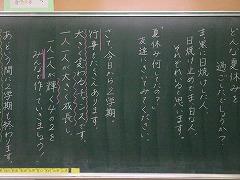 どんな夏休みを
過ごしたでしょうか?
真黒に日焼けした人、
日焼け止めでま白な人、
それぞれだと思います。
夏休み何してたの?と
友達にきいてみてください。
さて、今日から2学期。
行事もたくさんあります。
大きく変わるチャンスです。
一人一人が大きく成長し、
一人一人が輝く4の2を
みんなで作っていきましょう
あっという間に2学期も終わります。